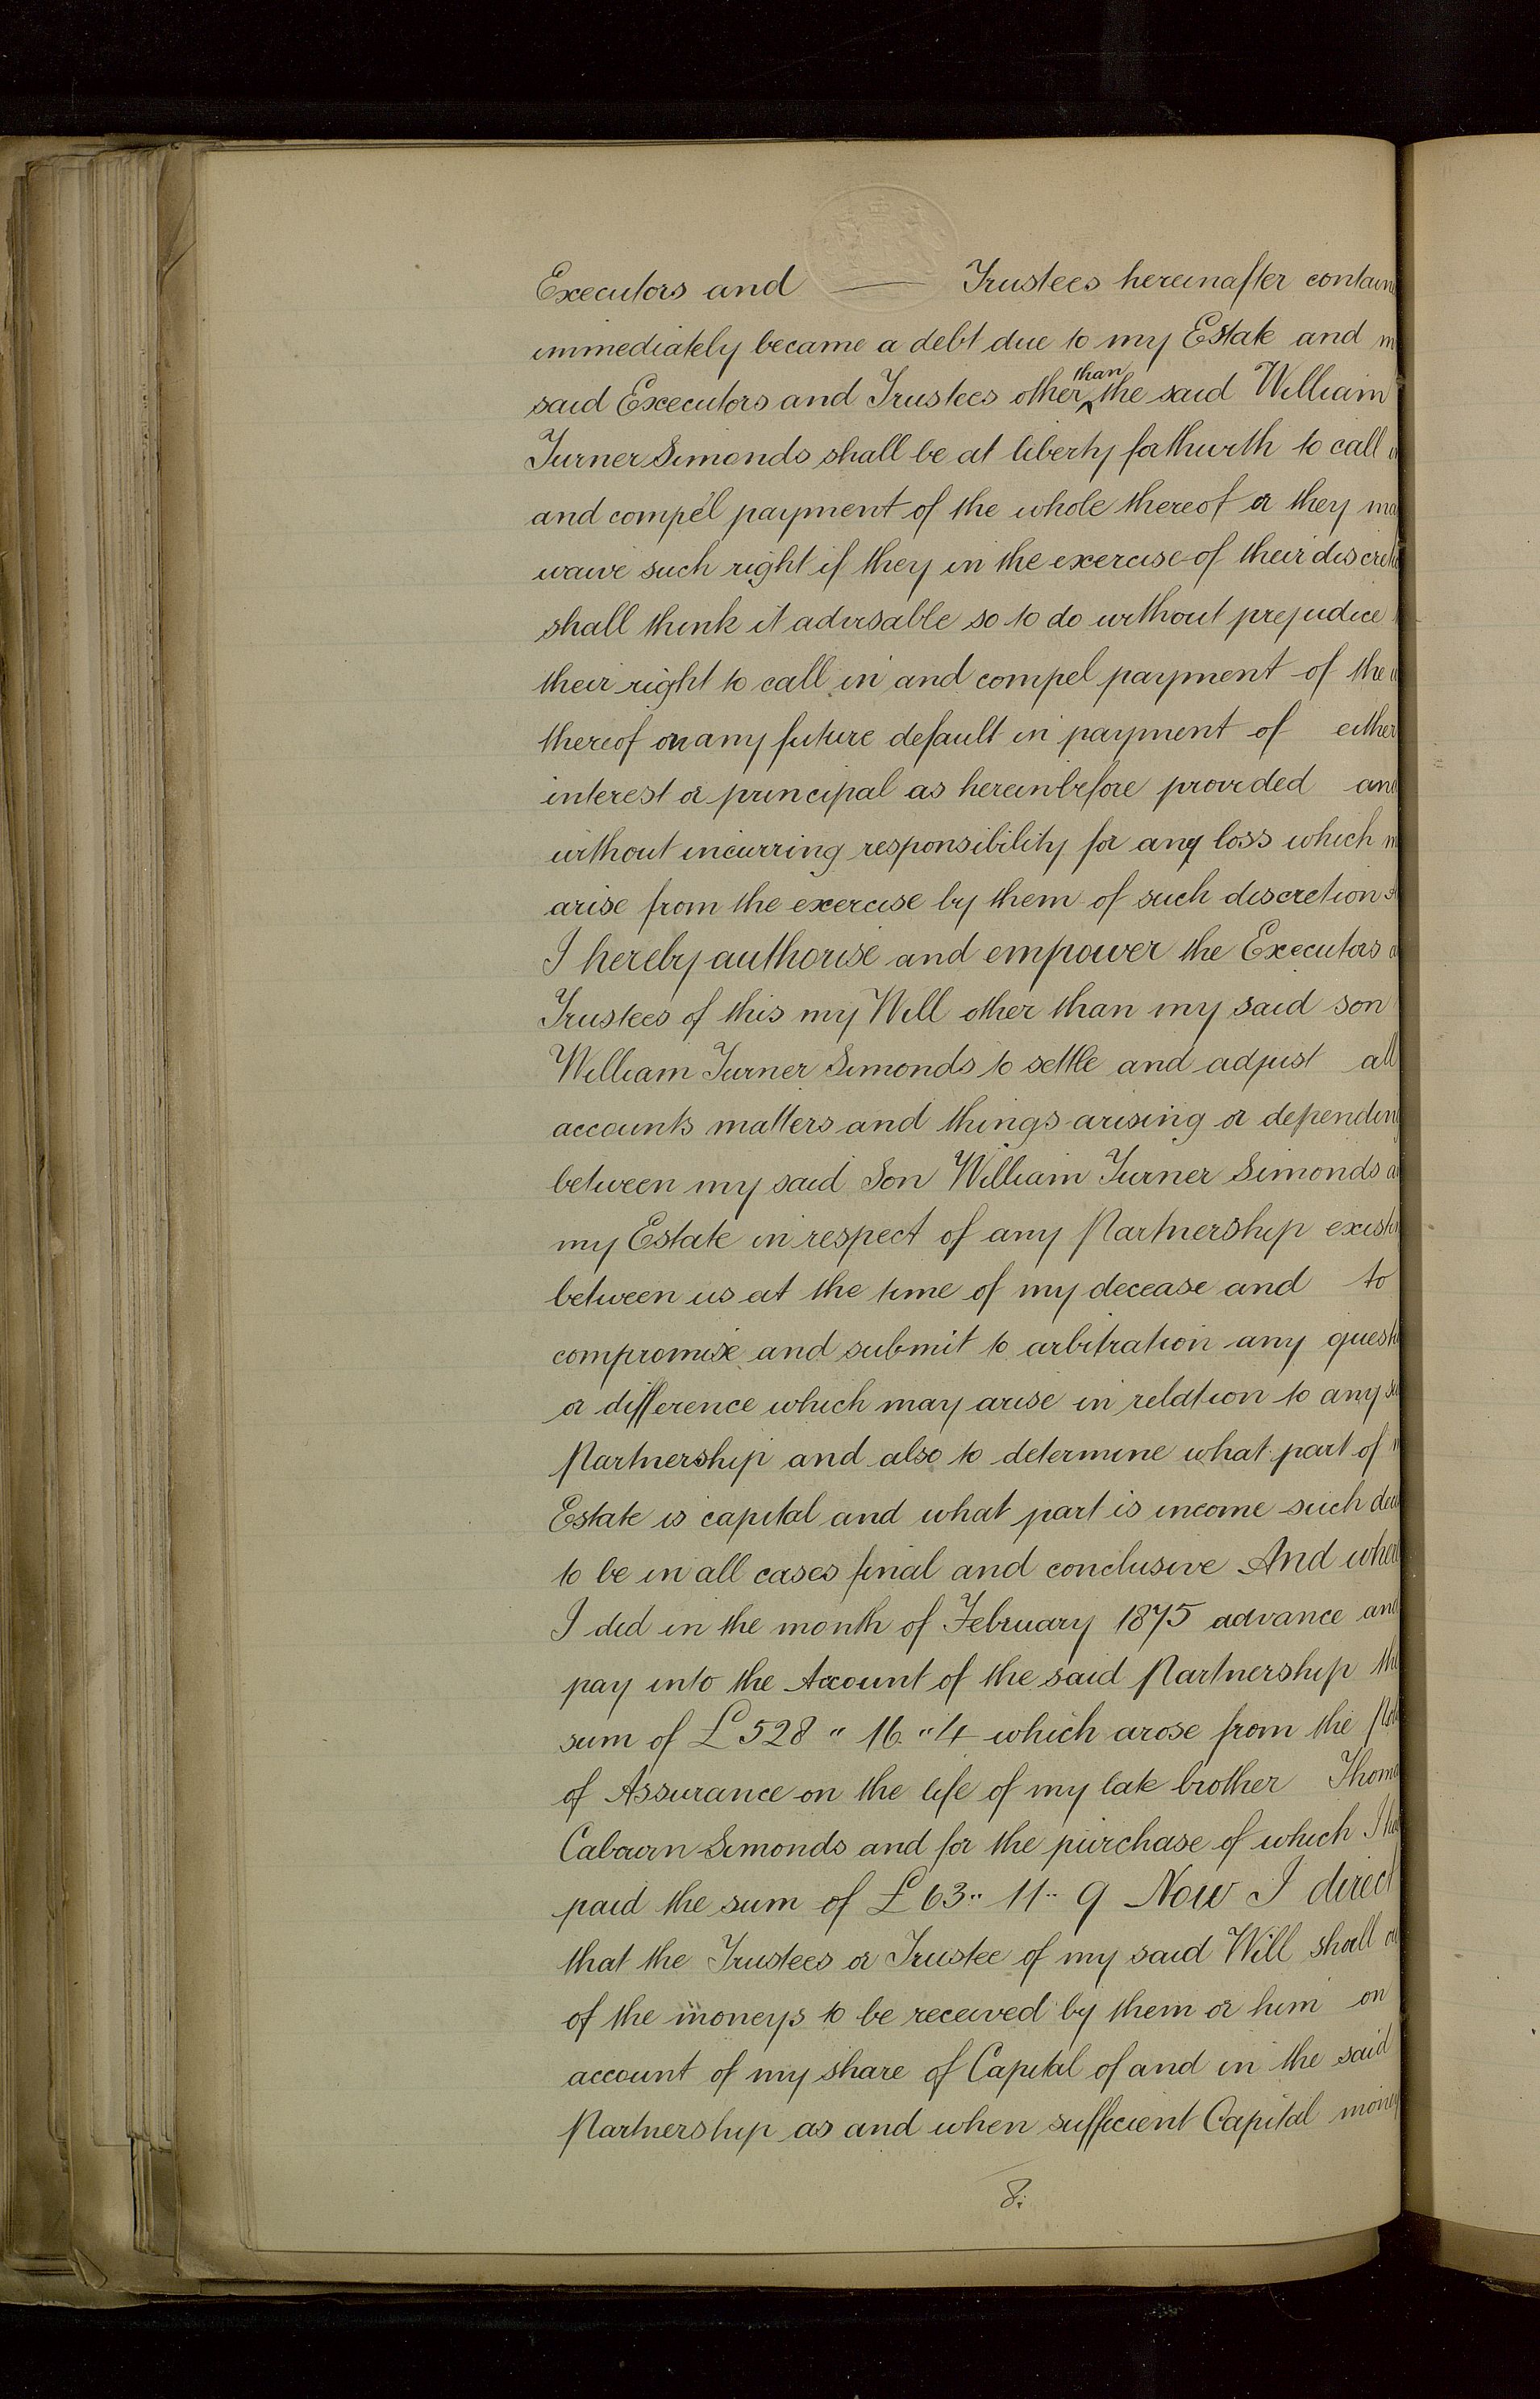 Executors and — Trustees hereinafter contain
immediately became a debt due to my Estate and m
said Executors and Trustees other than the said William
Turner Simonds shall be at liberty forthwith to call
and compel payment of the whole thereof or they ma
waive such right if they in the exercise of their discreti
shall think it advisable so to do without prejudice
their right to call in and compel payment of the
thereof on any future default in payment of either
interest or principal as hereinbefore provided and
without incurring responsibility for any loss which m
arise from the exercise by them of such discretion
I hereby authorise and empower the Executors a
Trustees of this my Will other than my said son
William Turner Simonds to settle and adjust all
accounts matters and things arising or dependin
between my said Son William Turner Simonds a
my Estate in respect of any Partnership existi
between us at the time of my decease and to
compromise and submit to arbitration any questi
or difference which may arise in relation to any su
Partnership and also to determine what part of
Estate is capital and what part is income such
to be in all cases final and conclusive And where
I did in the month of February 1875 advance and
pay into the Account of the said Partnership the
sum of £528 " 16 " 4 which arose from the Pol
of Assurance on the life of my late brother Thoma
Cabourn Simonds and for the purchase of which I
paid the sum of £63 " 11 " 9 Now I direct
that the Trustees or Trustee of my said Will shall
of the moneys to be received by them or him on
account of my share of Capital of and in the said
Partnership as and when sufficient Capital money
8.